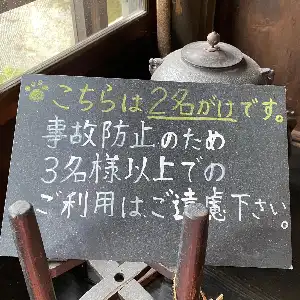 こちらは2名がけです。
事故防止のため
3名様以上での
ご利用は、ご遠慮下さい。